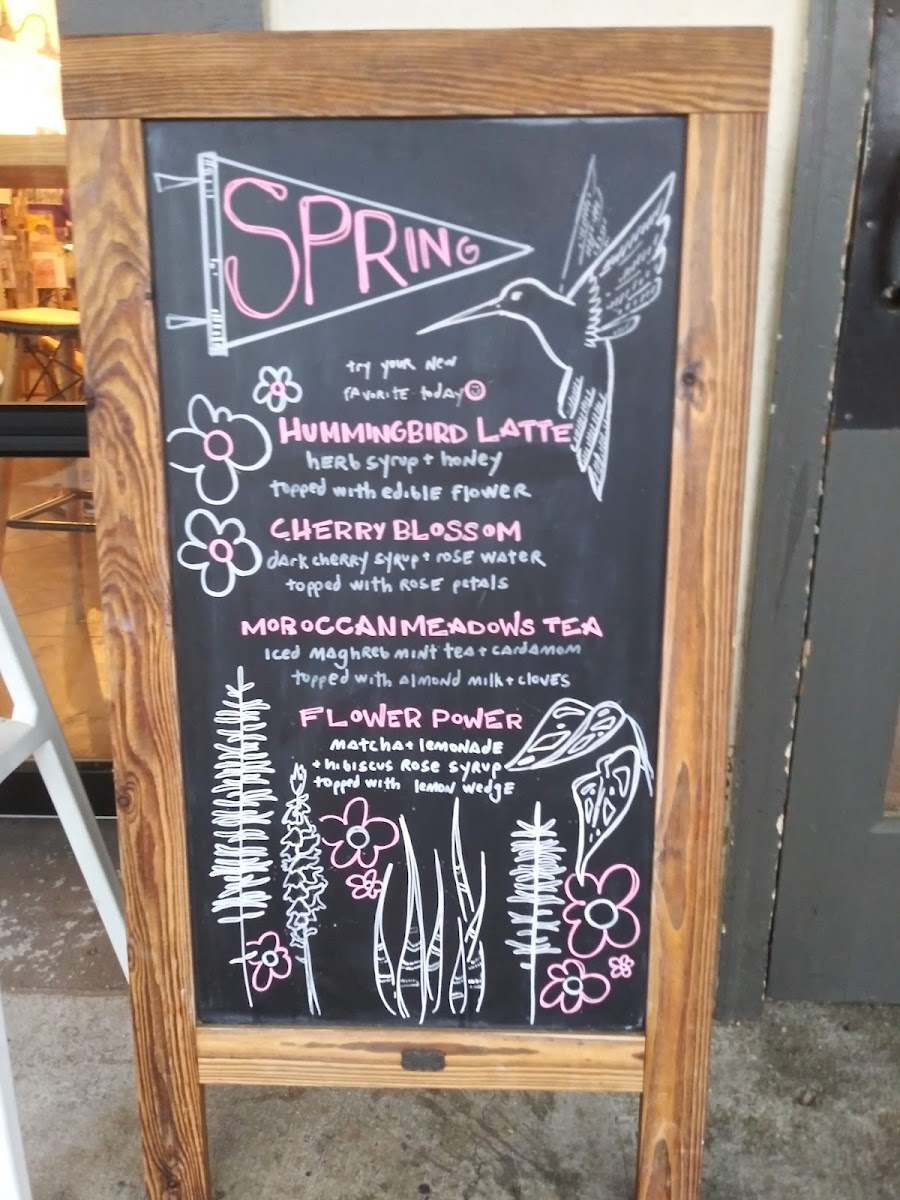 SPRING
try your new
favorite today
HUMMINGBIRD LATTE
herb syrup + honey
topped with edible flower
CHERRY BLOSSOM
dark cherry syrup + rose water
topped with rose petals
MOROCCAN MEADOWS TEA
iced maghreb mint tea + cardamom
topped with almond milk + cloves
FLOWER POWER
matcha + lemonade
+ hibiscus rose syrup
topped with lemon wedge